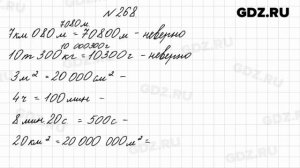 GDZ.RU
№268
7080м
7км 080м = 70800м - неверно
10 000300г
10т 300кг = 10300г - неверно
3м² = 20000см² -
4ч = 100мин -
8 мин. 20с = 500с -
20км² = 20 000 000м² =
GDZ.RU